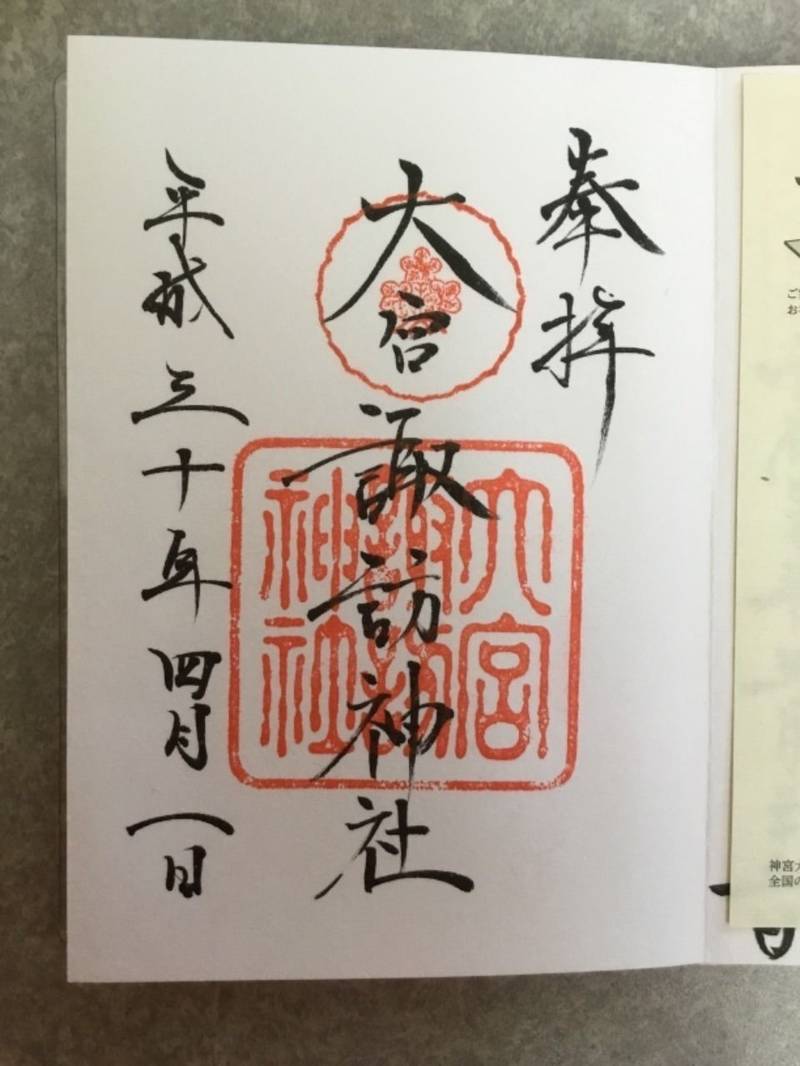 奉拝
大宮諏訪神社
平成三十年四月一日
大宮
諏訪
神社
神宮大
全国の